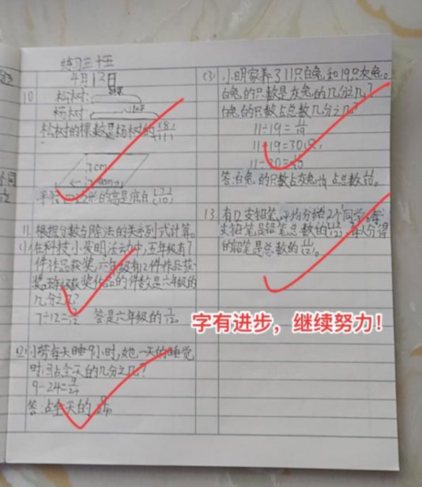 练习三十五
4月12日
10 松树:
杨树:
松树的棵数是杨树的(8)/(11)
7cm
平行四边形的高是底的(7)/(10)
11. 根据分数与除法的关系列式计算。
(1)在科技小发明活动中,五年级有7
件作品获奖,六年级有12件作品获
奖。五年级获奖作品的件数是六年级的
几分之几?
7÷12=7/12 答:是六年级的7/12。
(2)小芳每天睡9小时,她一天的睡觉
时间占全天的几分之几?
9÷24=9/24
答:占全天的
(3)小明家养了11只白兔和19只灰兔。
白兔的只数是灰兔的几分之几?
白兔的只数占总数几分之几?
11÷19=11/19
11+19=30(只)
11÷30=11/30
答:白兔的只数占灰兔
13. 有12支铅笔,平均分给2个同学。每
支铅笔是铅笔总数的
的铅笔是总数的
字有进步,继续努力!